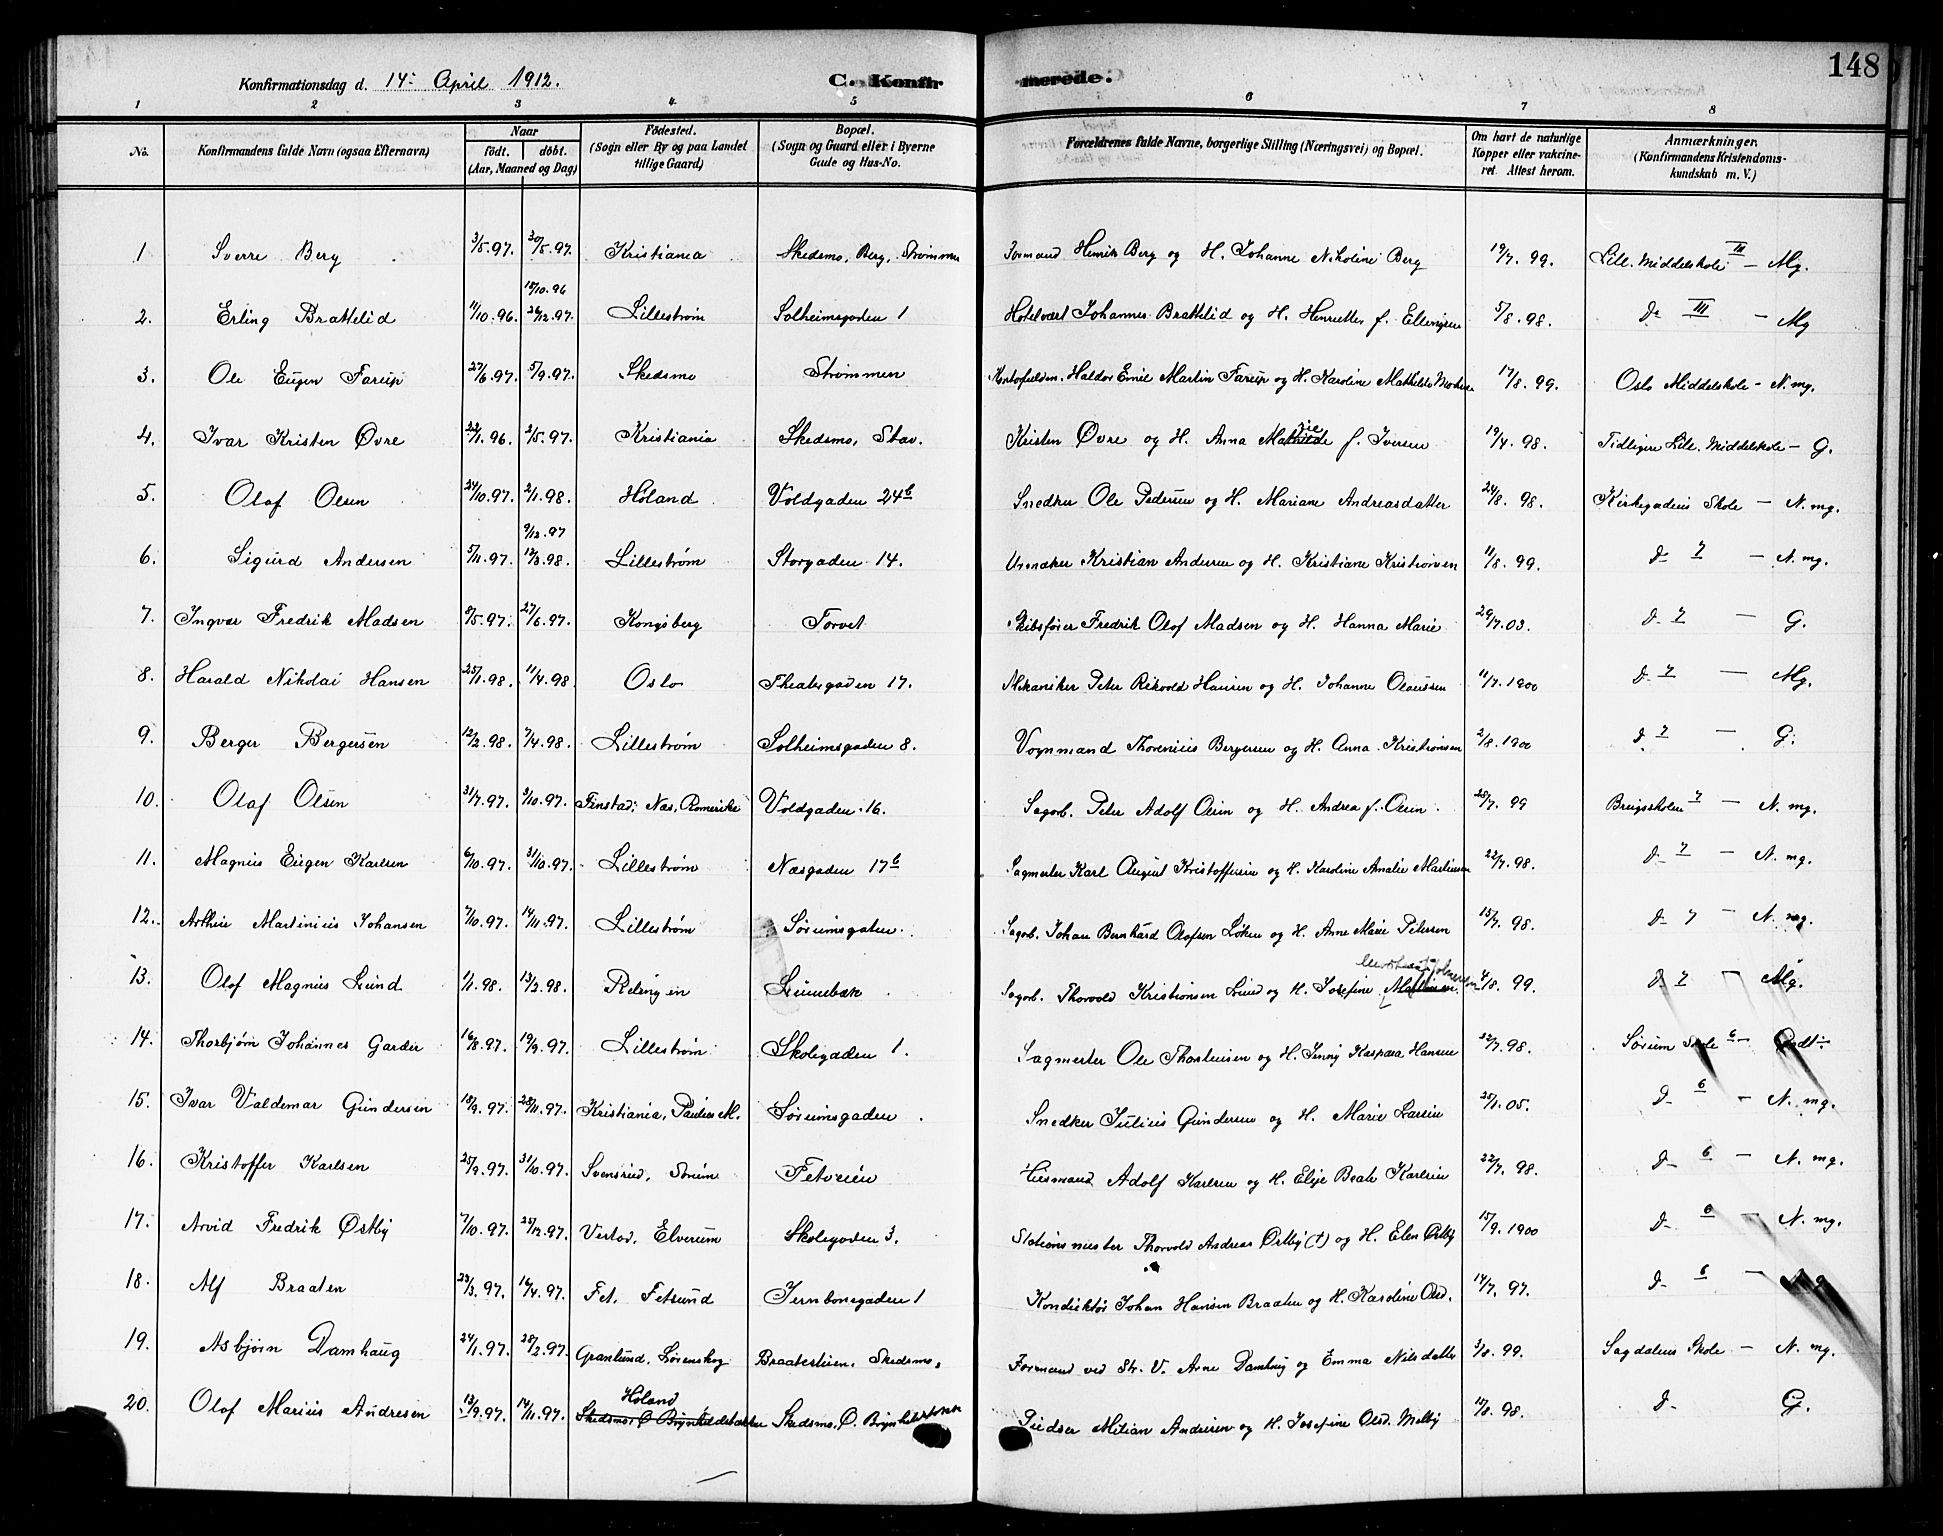 148
Konfirmationsdag d. 14de April 1912. C. Konfirmerede.
1 2 3 4 5 6 7 8
No. Konfirmandens fulde Navn (ogsaa Efternavn) Naar født. døbt. (Aar, Maaned og Dag) Fødested. (Sogn eller By og paa Landet tillige Gaard) Bopæl. (Sogn og Gaard eller i Byerne Gade og Hus-No. Forældrenes fulde Navne, borgerlige Stilling (Næringsvei) og Bopæl. Om havt de naturlige Kopper eller vakcineret. Attest herom. Anmærkninger. (Konfirmandens Kristendomskundskab m. V.)
1 Sverre Berg 3/5.97. 30/5.97. Kristiania Skedsmo, Berg, Strømmen Formand Henrik Berg og H. Johanne Nikoline Berg 19/7. 99. Lill. Middelskole III — Mg.
2. Erling Brattelid 11/10.96. 18/10.96 26/12.97. Lillestrøm Solheimsgaden 1 Hotelvært Johannes Brattelid og H. Henriette f. Ellingsen 5/8.98. Do III — Mg
3. Ole Eugen Farup 27/6.97. 5/9.97. Skedsmo Strømmen Haldor Emil Martin Farup og H. Karoline Mathilde 17/8. 99. Oslo Middelskole - N. mg.
4. Ivar Kristen Øvre 22/1.96. 2/5.97. Kristiania Skedsmo, Stav. Kristen Øvre og H. Anna Mathilde f. Iversen 19/4. 98. Tidligere Lill. Middelskole — G.
5. Olaf Olsen 24/10.97. 2/1.98. Høland Voldgaden 24b Snedker Ole Pedersen og H. Mariane Andreasdatter 24/8. 98. Kirkegadens Skole — N. mg.
6. Sigurd Andersen 5/11.97. 9/12.97 13/3.98. Lillestrøm Storgaden 14. Kristian Andersen og H. Kristiane Kristiansen 11/8. 99. Do 7 — N. mg.
7. Ingvar Fredrik Madsen 8/5.97. 27/6.97. Kongsberg Torvet Skibsfører Fredrik Olaf Madsen og H. Hanna Marie 29/7.03. Do 7 — G.
8. Harald Nikolai Hansen 25/1.98. 11/4.98 Oslo Theatergaden 17. Mekaniker Peter Rikvold Hansen og H. Johanne Olaussen 11/7.1900 Do 7 — Mg.
9. Berger Bergersen 12/2.98. 7/4.98. Lillestrøm Solheimsgaden 8. Vognmand Thorenius Bergersen og H. Anna Kristiansen 2/8.1900 Do 7 — G.
10. Olaf Olsen 31/7.97. 3/10.97. Finstad, Næs, Romerike Voldgaden 16. Sagarb. Peter Adolf Olsen og H. Andrea f. Olsen 28/7. 99 Brugsskolen 7 — N. mg.
11. Magnus Eugen Karlsen 6/10.97. 31/10.97. Lillestrøm Næsgaden 17b Sagmester Karl August Kristoffersen og H. Karoline Amalie Martinsen 22/7.98. Do 7 — N. mg.
12. Arthur Martinius Johansen 7/10.97. 14/11.97. Lillestrøm Sørumsgaden. Sagarb. Johan Bernhard Olafsen Løken og H. Anne Marie Petersen 15/7. 98. Do 7 — N. mg.
13. Olaf Magnus Lund 1/1.98. 13/2.98. Relingen Lunnebæk Sagarb. Thorvald Kristiansen Lund og H. Josefine Martinsen 4/8. 99. Do 7 — Mg.
14. Thorbjørn Johannes Garder 16/8.97. 19/9.97. Lillestrøm Skolegaden 1. Sagmester Ole Thorstensen og H. Jenny Kaspara Hansen 22/7.98. Sørum Skole 6 — Godt.
15. Ivar Valdemar Gundersen 18/9.97. 28/11.97. Kristiania, Paulus M. Sørumsgaden. Snedker Julius Gundersen og H. Marie Larsen 25/1.05. Do 6 — N. mg.
16. Kristoffer Karlsen 25/9.97. 31/10.97. Svensrud, Sørum Fetveien Husmand Adolf Karlsen og H. Elise Beate Karlsen 22/7. 98. Do 6 — N. mg.
17. Arvid Fredrik Østby 7/10.97. 25/12.97. Vestad, Elverum Skolegaden 3. Stationsmester Thorvald Andreas Østby (†) og H. Elen Østby 15/9.1900 Do 6 — N. mg.
18. Alf Braaten 23/3.97. 16/4.97. Fet, Fetsund Jernbanegaden 1 Konduktør Johan Hansen Braaten og H. Karoline Olsd. 14/7. 97. Do 6 — Mg
19. Asbjørn Damhaug 24/1.97. 28/2.97. Granlund, Lørenskog Braatestuen, Skedsmo. Formand ved Str. V. Arne Damhaug og Emma Nilsdatter 3/8. 99. Sagdalens Skole — N. mg.
20. Olaf Marius Andresen 13/9.97. 14/11.97. Høland Skedsmo, Ø. Brynhildsbakken Skedsmo, Ø. Brynhildsbakk Pudser Milian Andresen og H. Josefine Olsd. Melby 10/8. 98. Do G.